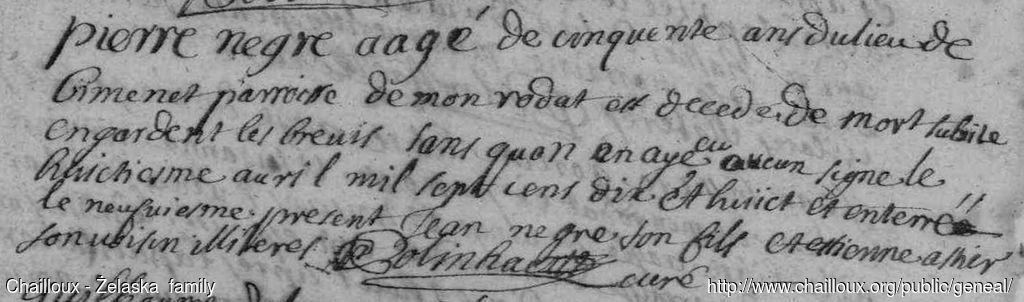 pierre negre aagé de cinquente ans du lieu de
Cimenet parroisse de mon rodat est decede de mort subite
en gardent les brevis sans quon en aye eu aucun signe le
huictiesme auril mil sept cens dix et huict et enterré
le neufuiesme present Jean negre son fils et estienne
son uoisin illiteres curé
Chailloux - Želaska family
http://www.chailloux.org/public/geneal/